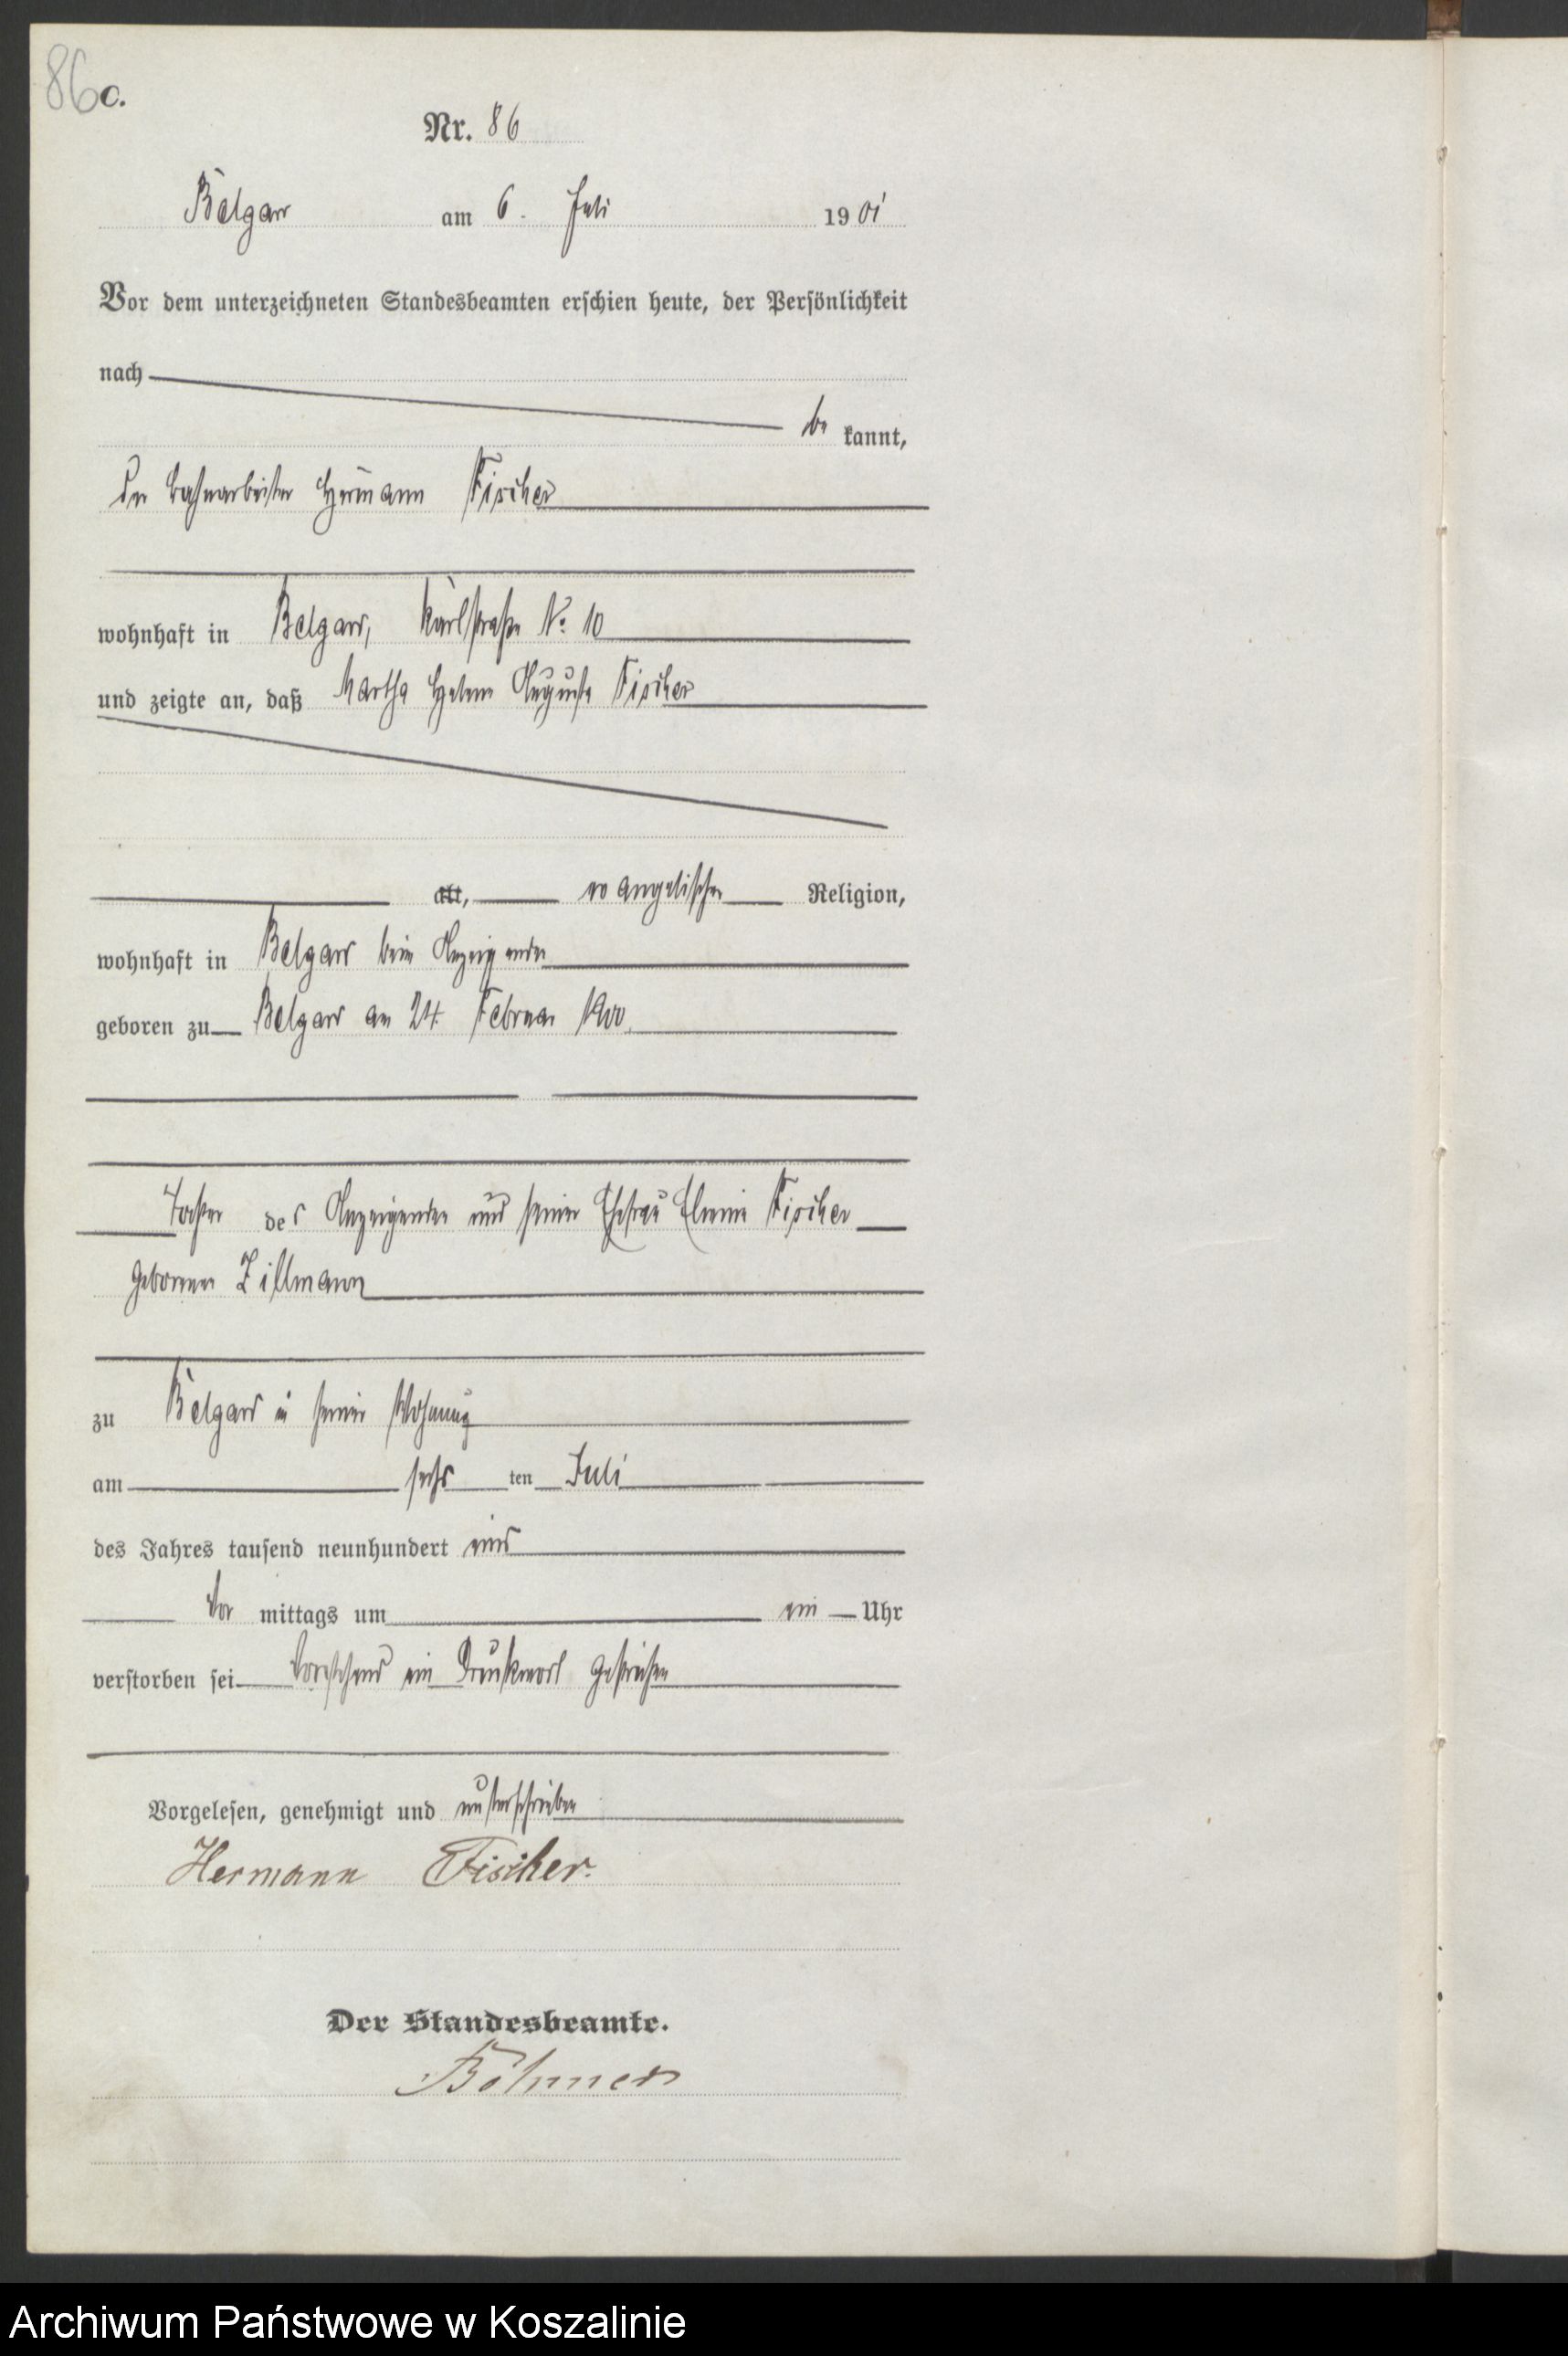 86c.
Nr. 86
Belgard am 6. Juli 1901
Vor dem unterzeichneten Standesbeamten erschien heute, der Persönlichkeit
nach
be kannt,
der Bahnarbeiter Hermann Fischer
wohnhaft in Belgard, Karlstraße No 10
und zeigte an, daß Martha Helene Auguste Fischer
alt, evangelischer Religion,
wohnhaft in Belgard beim Anzeigenden
geboren zu Belgard am 24. Februar 1900
Tochter des Anzeigenden und seiner Ehefrau Fischer
geborenen Zillmann
zu Belgard in seiner Wohnung
am sechs ten Juli
des Jahres tausend neunhundert eins
Vor mittags um ein Uhr
verstorben sei Vorstehend ein Druckwort gestrichen
Vorgelesen, genehmigt und unterschrieben
Hermann Fischer.
Der Standesbeamte.
Böhmer
Archiwum Państwowe w Koszalinie